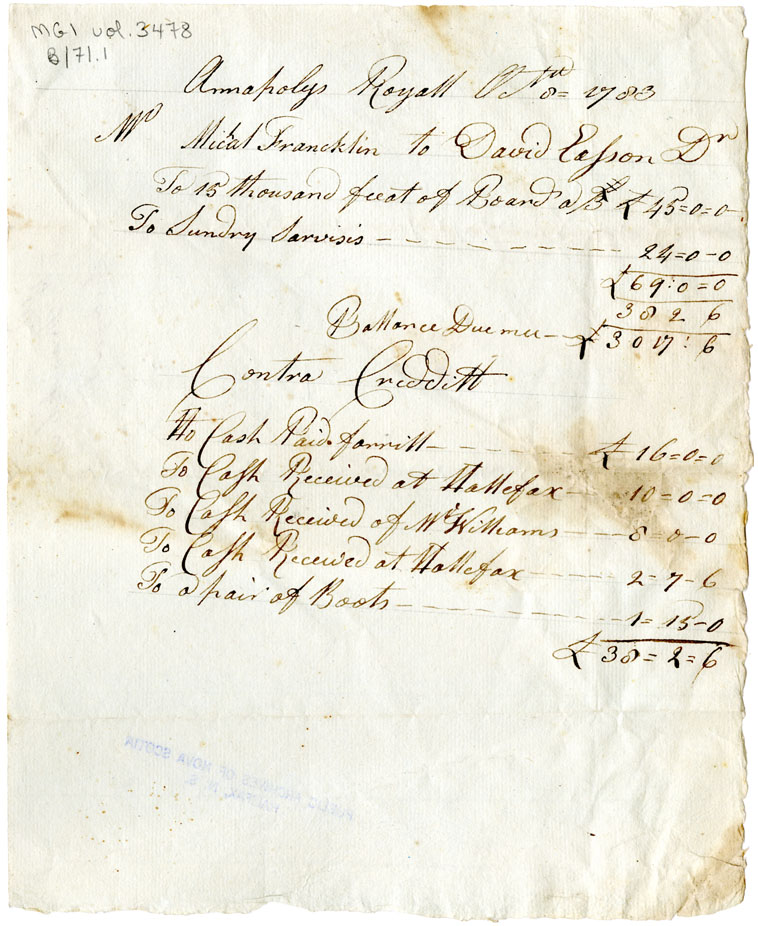 MG1 vol. 3478
B/71.1
Annapolys Royall Octr 8th = 1783
Mr Michal Francklin to David Easson Dr
To 15 thousand feeat of Board a £3 £ 45=0=0
To Sundry Sarvisis 24=0-0
£69:0=0
38 2 6
Ballance Due mee £3 0 17: 6
Contra Credditt
To Cash Paid 16=0=0
To Cash Received at Hallefax 10=0=0
To Cash Received of Mr Williams 8=0-0
To Cash Received at Hallefax 2=7-6
To a pair of Boots 1=15-0
£38=2=6
PUBLIC ARCHIVES OF NOVA SCOTIA
HALIFAX, N. S.